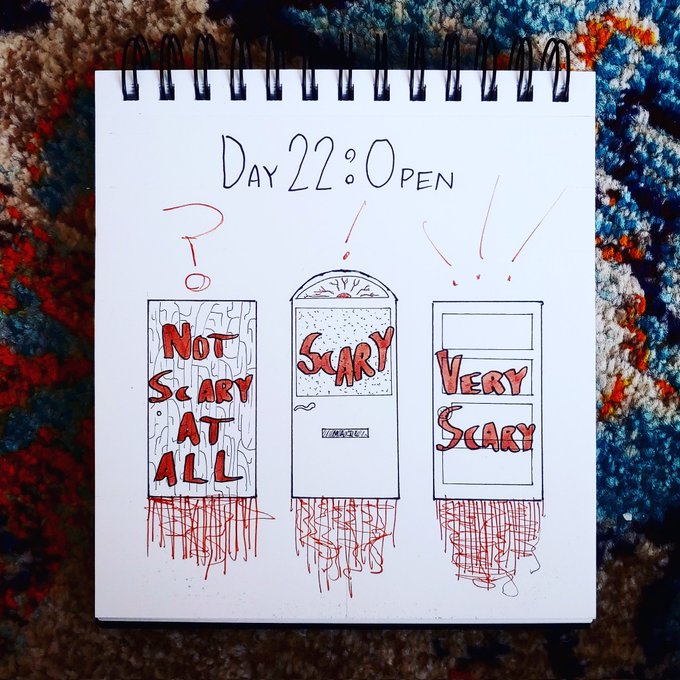 Day 22: Open
?
!
!!!
NOT
SCARY
AT
ALL
SCARY
MAIL
VERY
SCARY